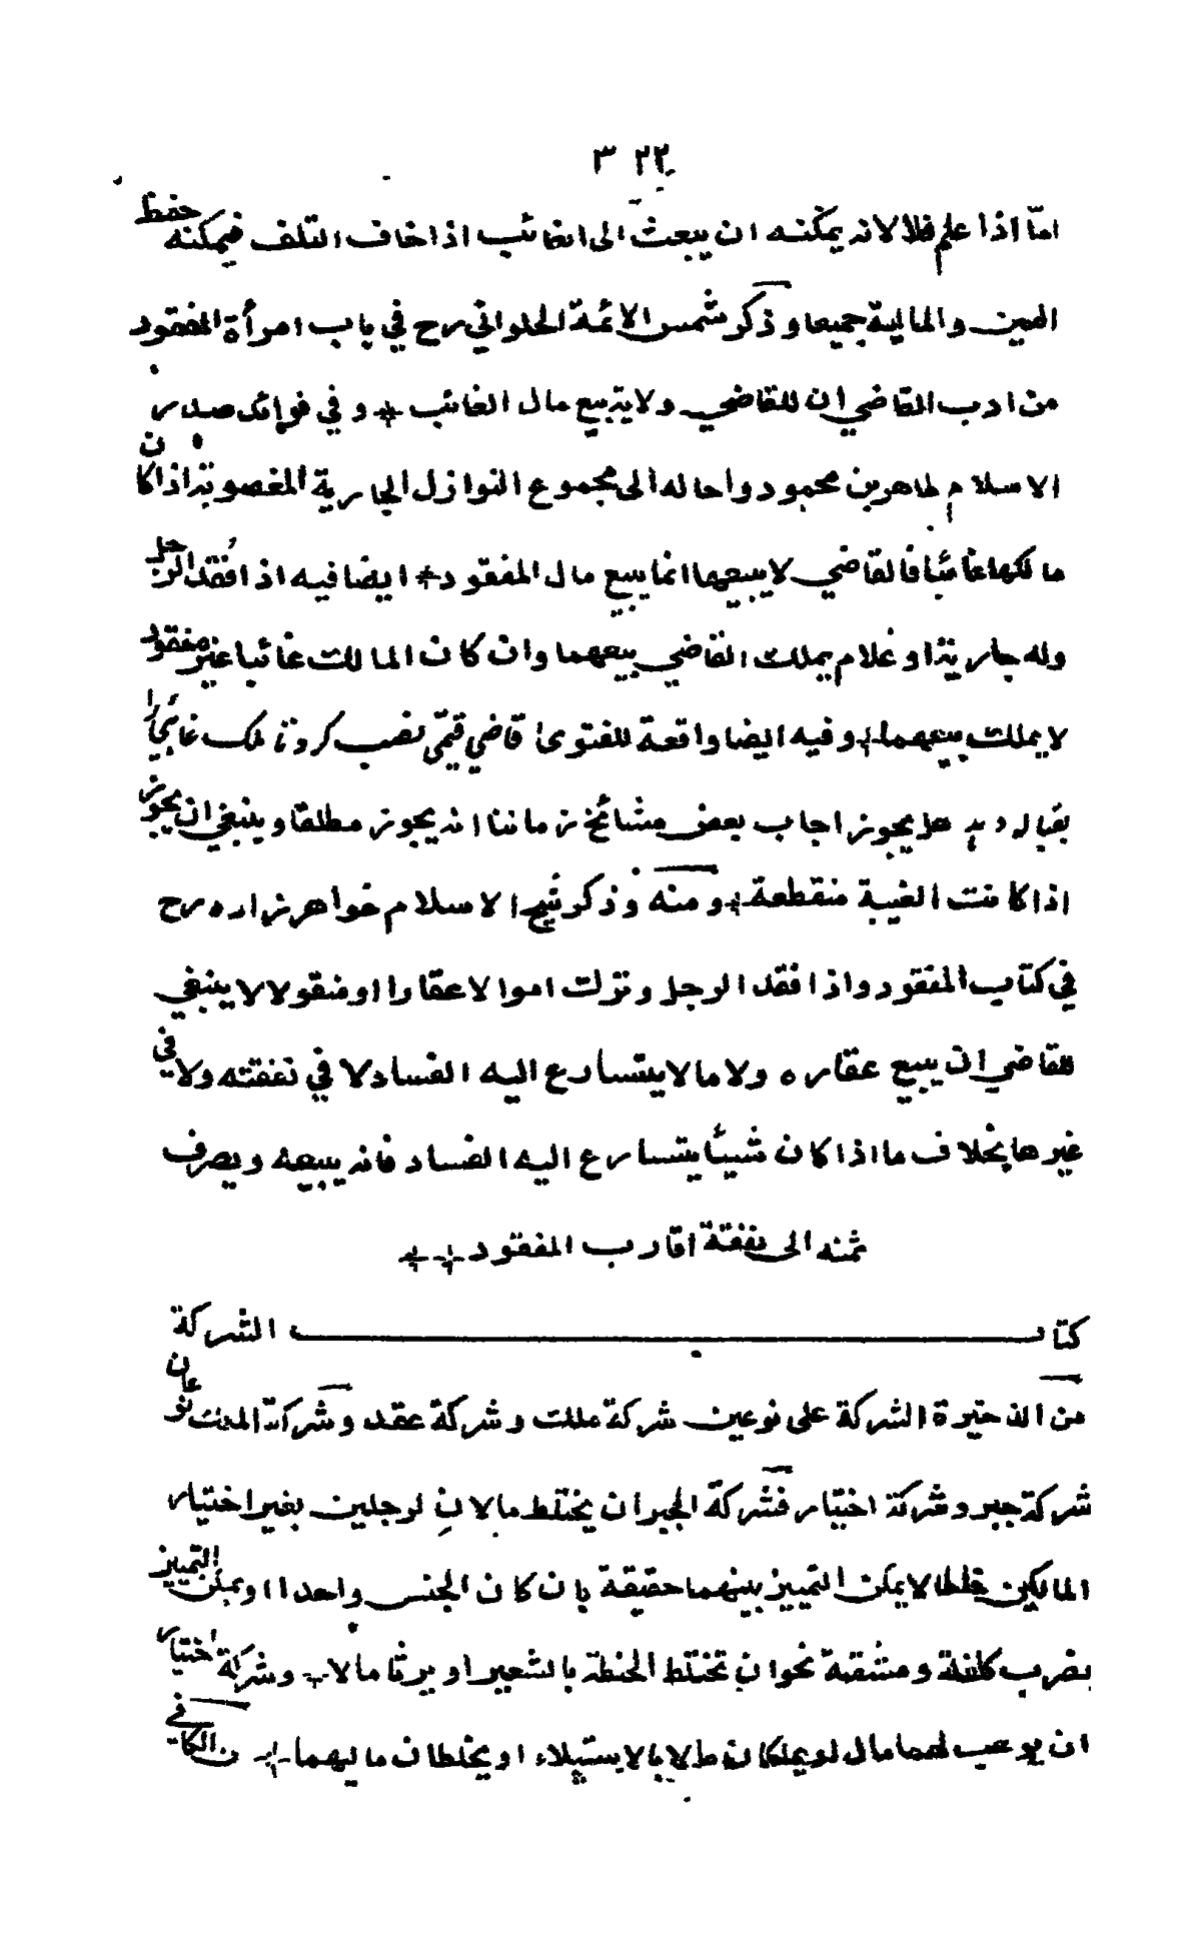 ٣٢٢
امّا اذا علم فلا لانه يمكنه ان يبعث الى الغائب اذا خاف التلف فيمكنه حفظ
العين والمالية جميعا وذكر شمس الائمة الحلواني رح في باب امرأة المفقود
من ادب القاضي ان للقاضي ولاية بيع مال الغائب * وفي فوائد صدر
الاسلام طاهر بن محمود واحاله الى مجموع النوازل الجارية المغصوبة اذا كان
مالكها غائبا فالقاضي لا يبيعها انما يبيع مال المفقود * ايضا فيه اذا فُقد الرجل
وله جارية او غلام يملك القاضي بيعهما وان كان المالك غائبا غير مفقود
لا يملك بيعهما * وفيه ايضا واقعة للفتوى قاضي قيمّى نصب كرد تا ملك غائبي را
بقباله دهد هل يجوز اجاب بعض مشائخ زماننا انه يجوز مطلقا وينبغي ان يجوز
اذا كانت الغيبة منقطعة * ومنه وذكر شيخ الاسلام خواهر زاده رح
في كتاب المفقود واذا فقد الرجل وترك اموالا عقارا او منقولا لا ينبغي
للقاضي ان يبيع عقاره ولا مالا يتسارع اليه الفساد لا في نفقته ولا في
غيرها بخلاف ما اذا كان شيئا يتسارع اليه الفساد فانه يبيعه ويصرف
ثمنه الى نفقة اقارب المفقود * *
كتاب الشركة
من الذخيرة الشركة على نوعين شركة ملك وشركة عقد وشركة الملك نوعان
شركة جبر وشركة اختيار فشركة الجبر ان يختلط مالان لرجلين بغير اختيار
المالكين خلطا لا يمكن التمييز بينهما حقيقة بان كان الجنس واحدا او يمكن التمييز
بضرب كلفة ومشقة نحو ان تختلط الحنطة بالشعير او يرثا مالا * وشركة اختيار
ان يوهب لهما مال او يملكان مالا بالاستيلاء او يخلطان ماليهما * من الكافي